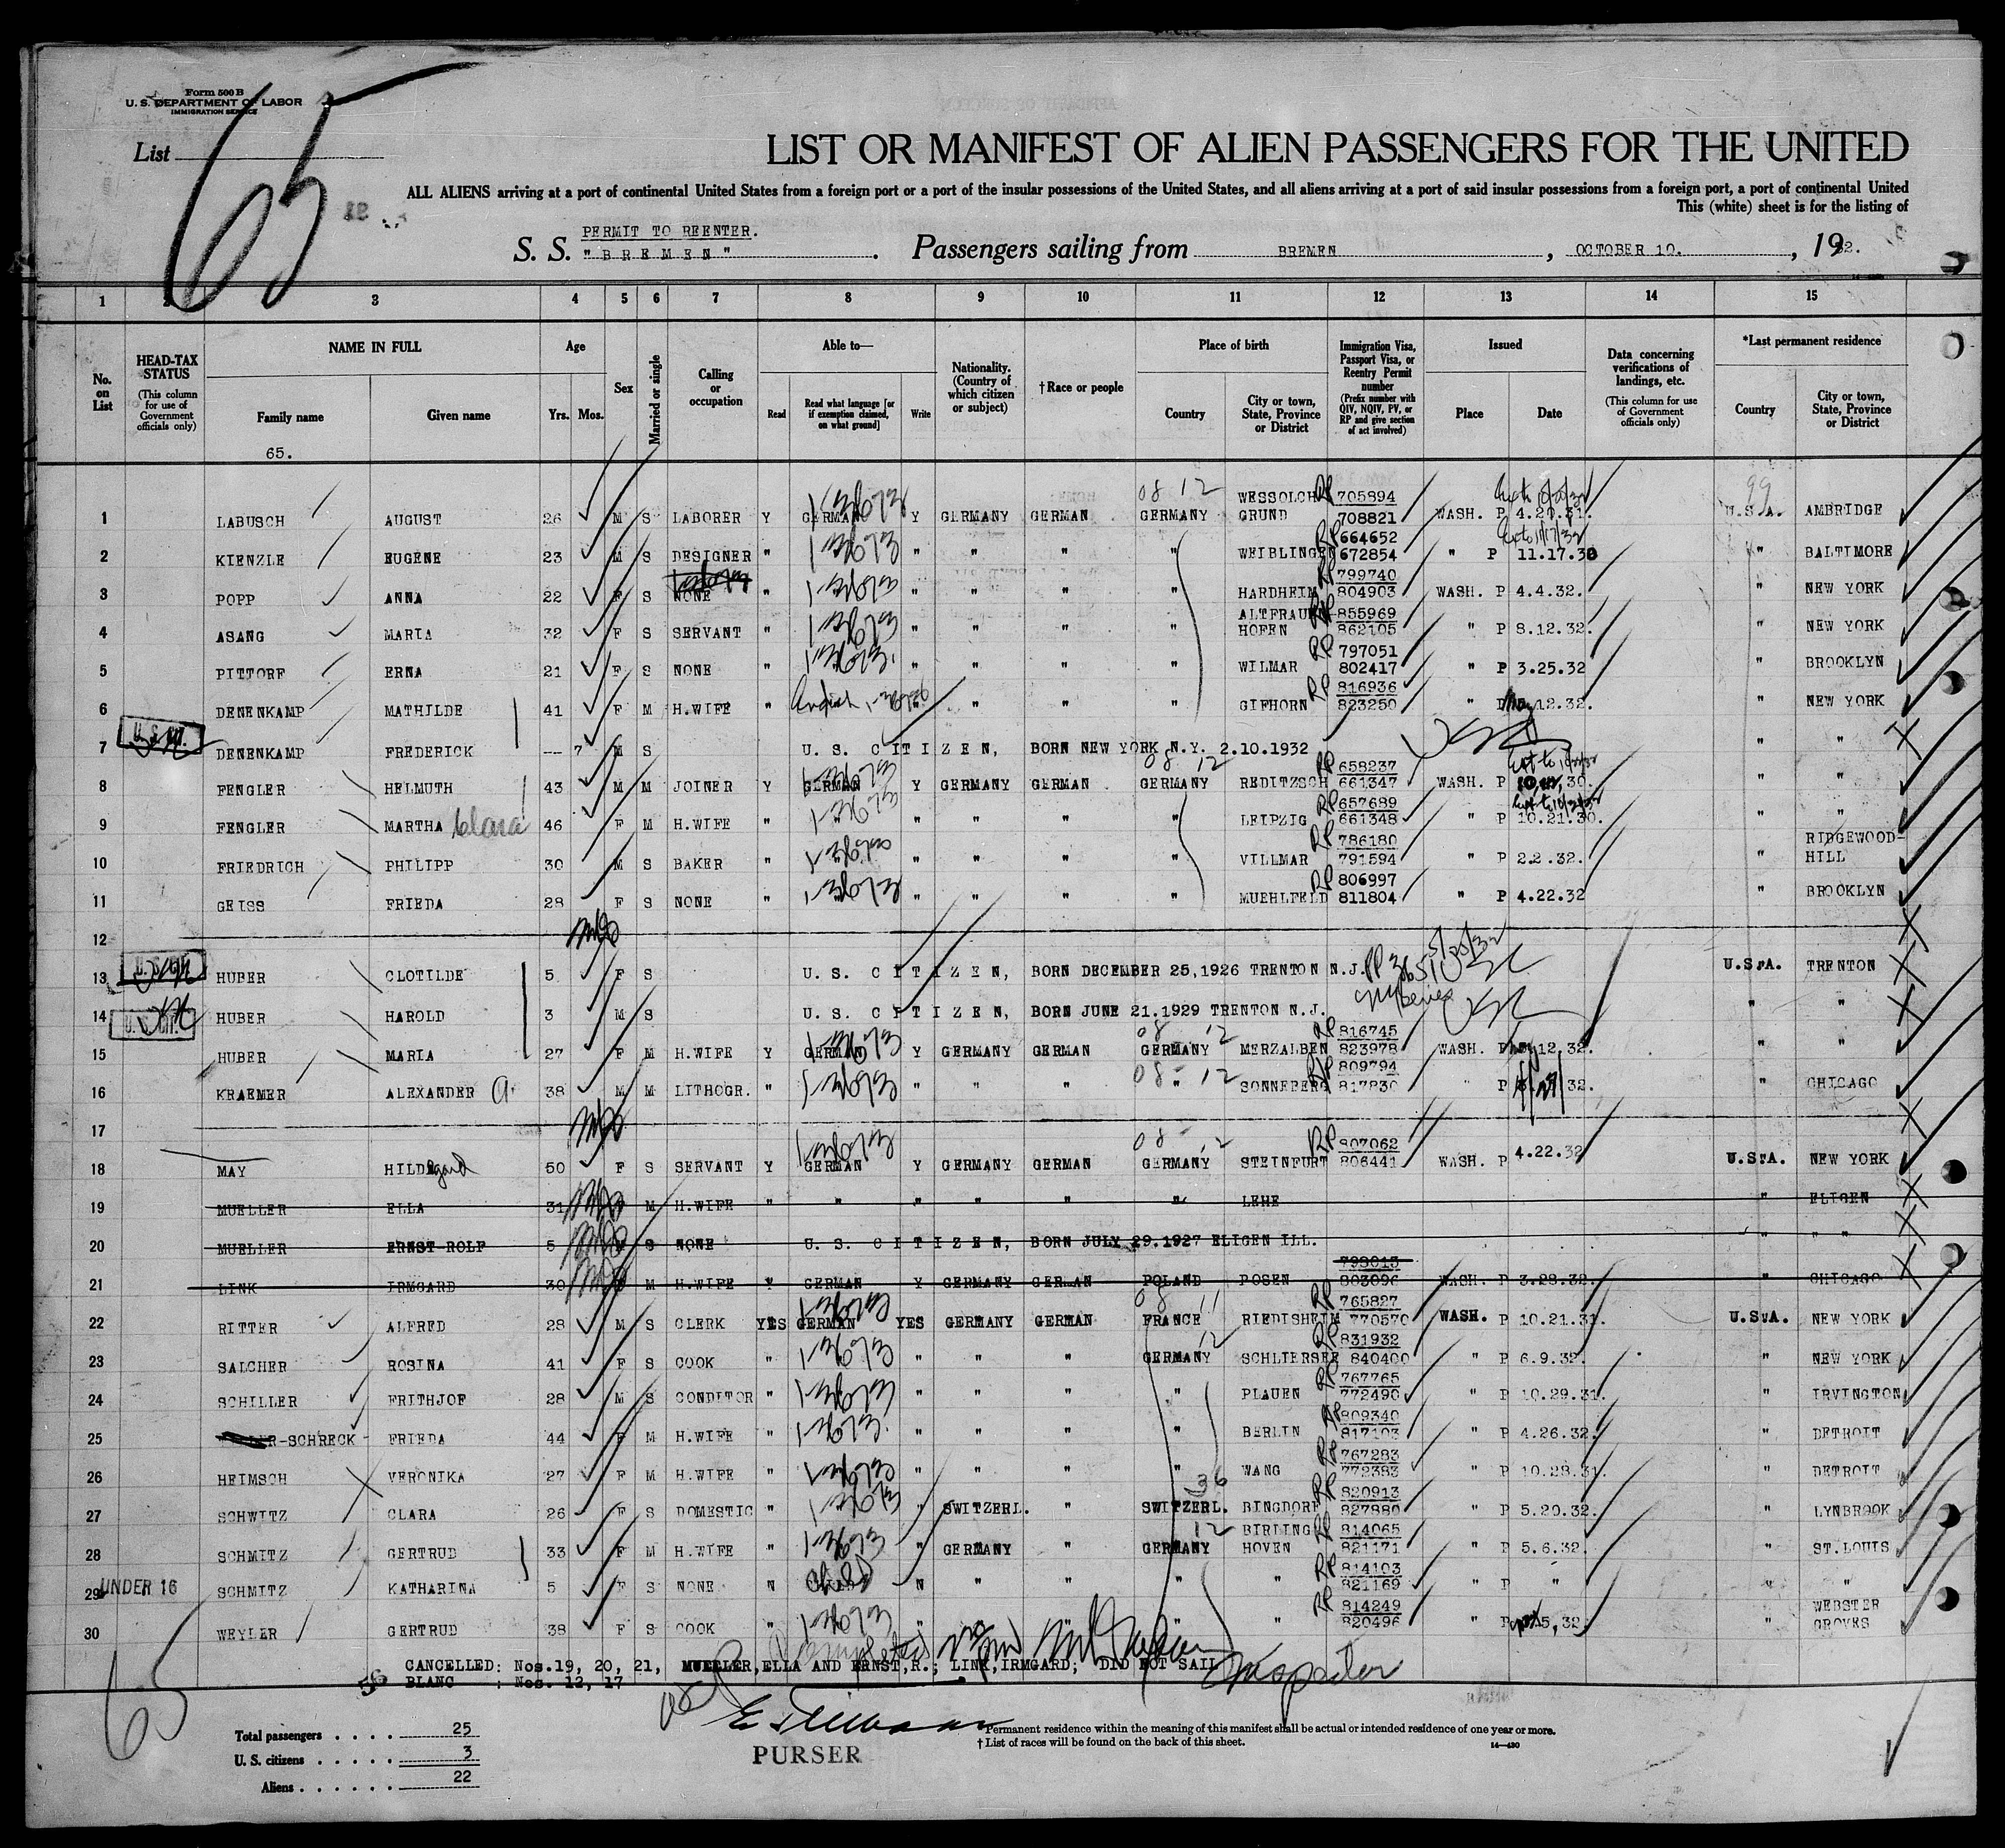 Form 500 B
U. S. DEPARTMENT OF LABOR
IMMIGRATION SERVICE
List
65
LIST OR MANIFEST OF ALIEN PASSENGERS FOR THE UNITED
ALL ALIENS arriving at a port of continental United States from a foreign port or a port of the insular possessions of the United States, and all aliens arriving at a port of said insular possessions from a foreign port, a port of continental United
This (white) sheet is for the listing of
PERMIT TO REENTER.
S. S. "BREMEN". Passengers sailing from BREMEN, OCTOBER 10., 1932.
1 2 3 4 5 6 7 8 9 10 11 12 13 14 15
No. on List
HEAD-TAX STATUS (This column for use of Government officials only)
NAME IN FULL Family name Given name
65.
Age Yrs. Mos.
Sex
Married or single
Calling or occupation
Able to— Read Read what language [or if exemption claimed, on what ground] Write
Nationality. (Country of which citizen or subject)
†Race or people
Place of birth Country City or town, State, Province or District
Immigration Visa, Passport Visa, or Reentry Permit number (Prefix number with QIV, NQIV, PV, or RP and give section of act involved)
Issued Place Date
Data concerning verifications of landings, etc. (This column for use of Government officials only)
*Last permanent residence Country City or town, State, Province or District
1 LABUSCH AUGUST 26 M S LABORER Y GERMAN Y GERMANY GERMAN GERMANY WESSOLCH GRUND RP 705894 708821 WASH. P 4.20.31. U.S.A. AMBRIDGE
2 KIENZLE EUGENE 23 M S DESIGNER " " " " " WEIBLINGEN RP 664652 672854 " P 11.17.30 " BALTIMORE
3 POPP ANNA 22 F S NONE " " " " " HARDHEIM RP 799740 804903 WASH. P 4.4.32. " NEW YORK
4 ASANG MARIA 32 F S SERVANT " " " " " HOFEN RP 855969 862105 " P 8.12.32. " NEW YORK
5 PITTORF ERNA 21 F S NONE " " " " " WILMAR RP 797051 802417 " P 3.25.32 " BROOKLYN
6 DENENKAMP MATHILDE 41 F M H.WIFE " " " " " GIFHORN RP 816936 823250 " 12.32. " NEW YORK
7 DENENKAMP FREDERICK -- 7 M S U. S. CITIZEN, BORN NEW YORK N.Y. 2.10.1932 " "
8 FENGLER HELMUTH 43 M M JOINER Y GERMAN Y GERMANY GERMAN GERMANY REDITZSCH RP 658237 661347 WASH. P 30. " "
9 FENGLER MARTHA Clara 46 F M H.WIFE " " " " " LEIPZIG RP 657689 661348 " P 10.21.30. " "
10 FRIEDRICH PHILIPP 30 M S BAKER " " " " " VILLMAR RP 786180 791594 " P 2.2.32. " RIDGEWOOD-HILL
11 GEISS FRIEDA 28 F S NONE " " " " " MUEHLFELD RP 806997 811804 " P 4.22.32 " BROOKLYN
12
13 HUBER CLOTILDE 5 F S U. S. CITIZEN, BORN DECEMBER 25,1926 TRENTON N.J. 5/25/32 U.S.A. TRENTON
14 HUBER HAROLD 3 M S U. S. CITIZEN, BORN JUNE 21.1929 TRENTON N.J. " "
15 HUBER MARIA 27 F M H.WIFE Y GERMAN Y GERMANY GERMAN GERMANY MERZALBEN RP 816745 823978 WASH. 12.32. " "
16 KRAEMER ALEXANDER 38 M M LITHOGR. " " " " " SONNEBERG RP 809794 817830 " P 32. " CHICAGO
17
18 MAY HILDegard 50 F S SERVANT Y GERMAN Y GERMANY GERMAN GERMANY STEINFURT RP 807062 806441 WASH. P 4.22.32 U.S.A. NEW YORK
19 MUELLER ELLA 31 M H.WIFE " " " " " " LEHE " ELIGEN
20 MUELLER ERNST-ROLF 5 M S NONE U. S. CITIZEN, BORN JULY 29.1927 ELIGEN ILL. " "
21 LINK IRMGARD 30 M H.WIFE Y GERMAN Y GERMANY GERMAN POLAND POSEN 798013 803096 WASH. P 3.28.32. " CHICAGO
22 RITTER ALFRED 28 M S CLERK YES GERMAN YES GERMANY GERMAN FRANCE RIEDISHEIM RP 765827 770570 WASH. P 10.21.31. U.S.A. NEW YORK
23 SALCHER ROSINA 41 F S COOK " " " " GERMANY SCHLIERSEE RP 831932 840400 " P 6.9.32. " NEW YORK
24 SCHILLER FRITHJOF 28 M S CONDITOR " " " " " PLAUEN RP 767765 772490 " P 10.29.31. " IRVINGTON
25 -SCHRECK FRIEDA 44 F M H.WIFE " " " " " BERLIN RP 809340 817103 " P 4.26.32. " DETROIT
26 HEIMSCH VERONIKA 27 F M H.WIFE " " " " " WANG RP 767283 772383 " P 10.28.31. " DETROIT
27 SCHWITZ CLARA 26 F S DOMESTIC " " SWITZERL. " SWITZERL. BINGDORF RP 820913 827880 " P 5.20.32. " LYNBROOK
28 SCHMITZ GERTRUD 33 F M H.WIFE " " GERMANY " GERMANY BIRLING HOVEN RP 814065 821171 " P 5.6.32. " ST.LOUIS
UNDER 16
29 SCHMITZ KATHARINA 5 F S NONE N Child N " " " " RP 814103 821169 " P " " "
30 WEYLER GERTRUD 38 F S COOK " " " " " " RP 814249 820496 " P 5,32. " WEBSTER GROVES
CANCELLED: Nos.19, 20, 21, MUELLER,ELLA AND ERNST,R.; LINK,IRMGARD; DID NOT SAIL
BLANC : Nos. 12, 17
Inspector
65
Total passengers 25
U. S. citizens 3
Aliens 22
PURSER
*Permanent residence within the meaning of this manifest shall be actual or intended residence of one year or more.
† List of races will be found on the back of this sheet.
14—430